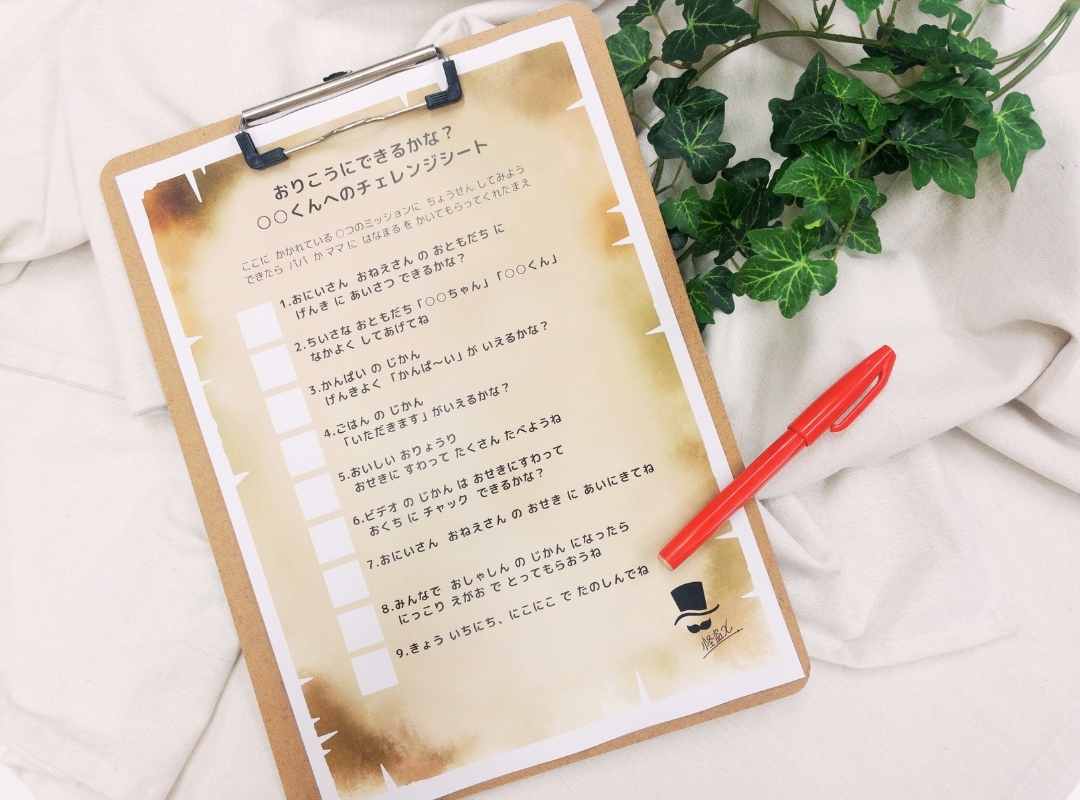 おりこうにできるかな？
○○くんへのチェレンジシート
ここに かかれている ○つのミッションに ちょうせん してみよう
できたら パパ か ママ に はなまる を かいてもらってくれたまえ
1.おにいさん おねえさん の おともだち に
げんき に あいさつ できるかな？
2.ちいさな おともだち「○○ちゃん」「○○くん」
なかよく してあげてね
3.かんぱい の じかん
げんきよく 「かんぱ～い」が いえるかな？
4.ごはん の じかん
「いただきます」がいえるかな？
5.おいしい おりょうり
おせきに すわって たくさん たべようね
6.ビデオ の じかん は おせきにすわって
おくち に チャック できるかな？
7.おにいさん おねえさん の おせき に あいにきてね
8.みんなで おしゃしん の じかん になったら
にっこり えがお で とってもらおうね
9.きょう いちにち、にこにこ で たのしんでね
怪盗X